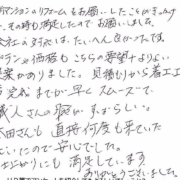 マンションのリフォームをお願いしたことがきっかけ
、その時も満足したのでお願いしました。
会社の対応は、たいへん良かったです。
プランや価格もこちらの要望よりよい
提案がありました。見積りから着工
完成までが早くスムーズで、
職人さんの腕がすばらしい。
田さんも直接何度も来ていた
いたので安心でした。
仕上がりにも満足しています
ありがとうございました。